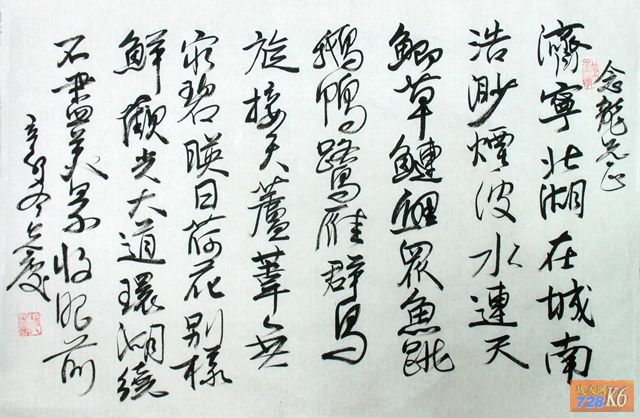 念龍兄正
濟寧北湖在城南
浩渺煙波水連天
鯽草鰱鯉眾魚跳
鵝鴨鷺雁群鳥
旋接天蘆葦無
窮碧映日荷花別樣
鮮觀光大道環湖繞
不盡美景收眼前
辛卯冬慶
战友网
728K6